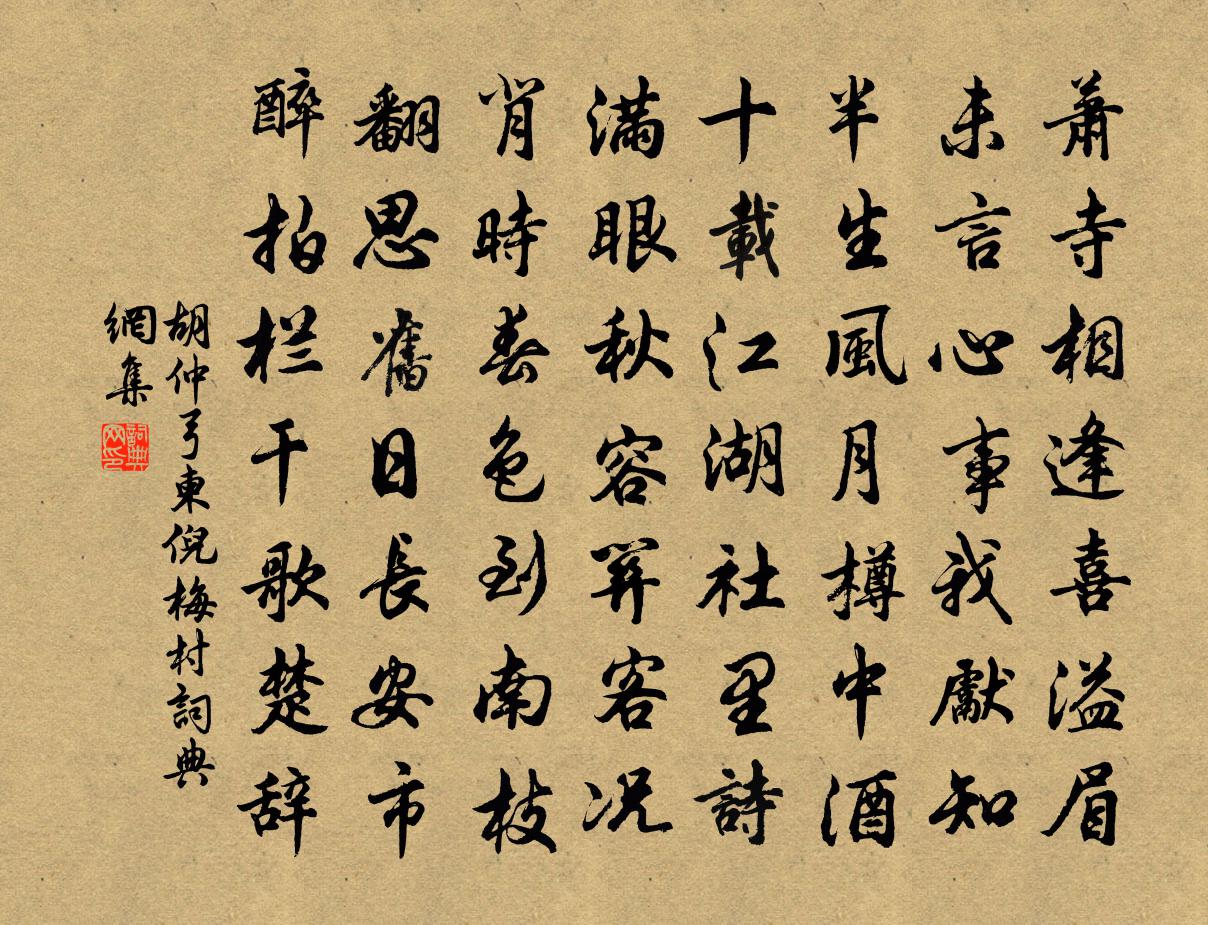 蕭寺相逢喜溢眉
未言心事我獻知
半生風月樽中酒
十載江湖社里詩
滿眼秋容客况
肖時春色到南枝
翻思舊日長安市
醉拍栏干歌楚辞
胡仲弓東倪梅村詞典
網集
詞典网印